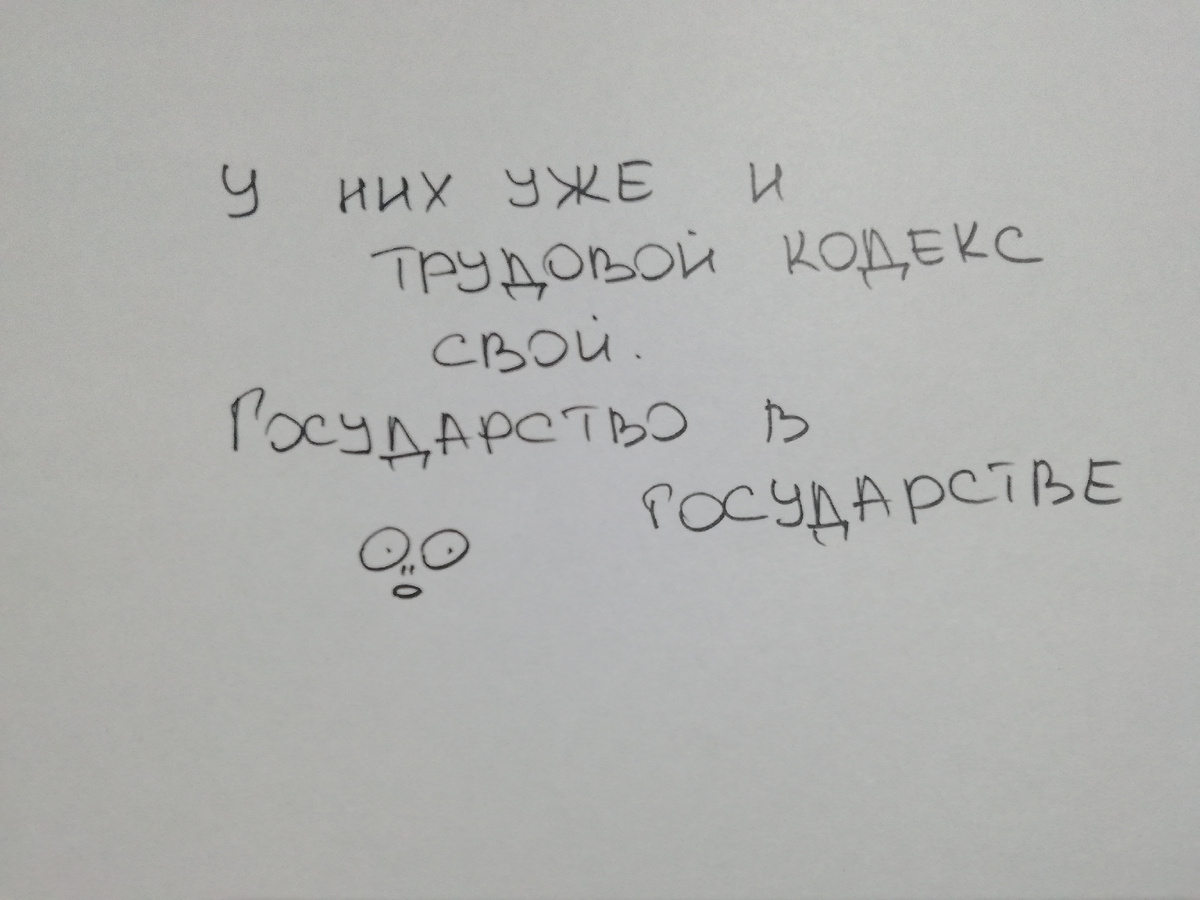 У НИХ УЖЕ И
ТРУДОВОЙ КОДЕКС
СВОЙ.
ГОСУДАРСТВО В
ГОСУДАРСТВЕ